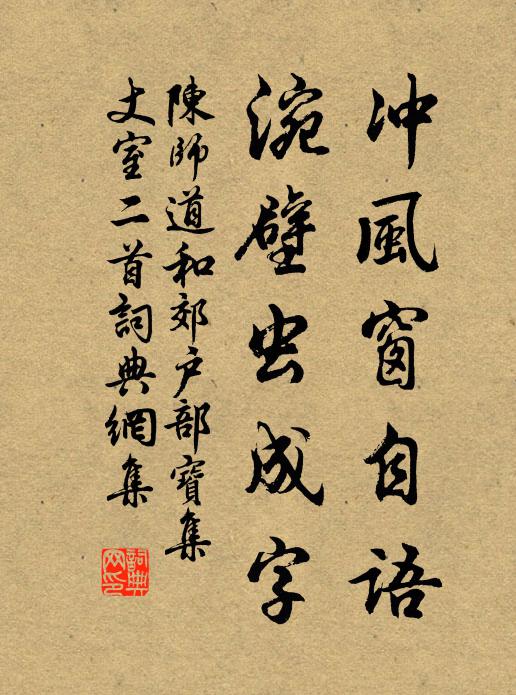 冲風窗自語
涴壁虫成字
陳師道和郊户部寶集
丈室二首詞典網集
詞典網印